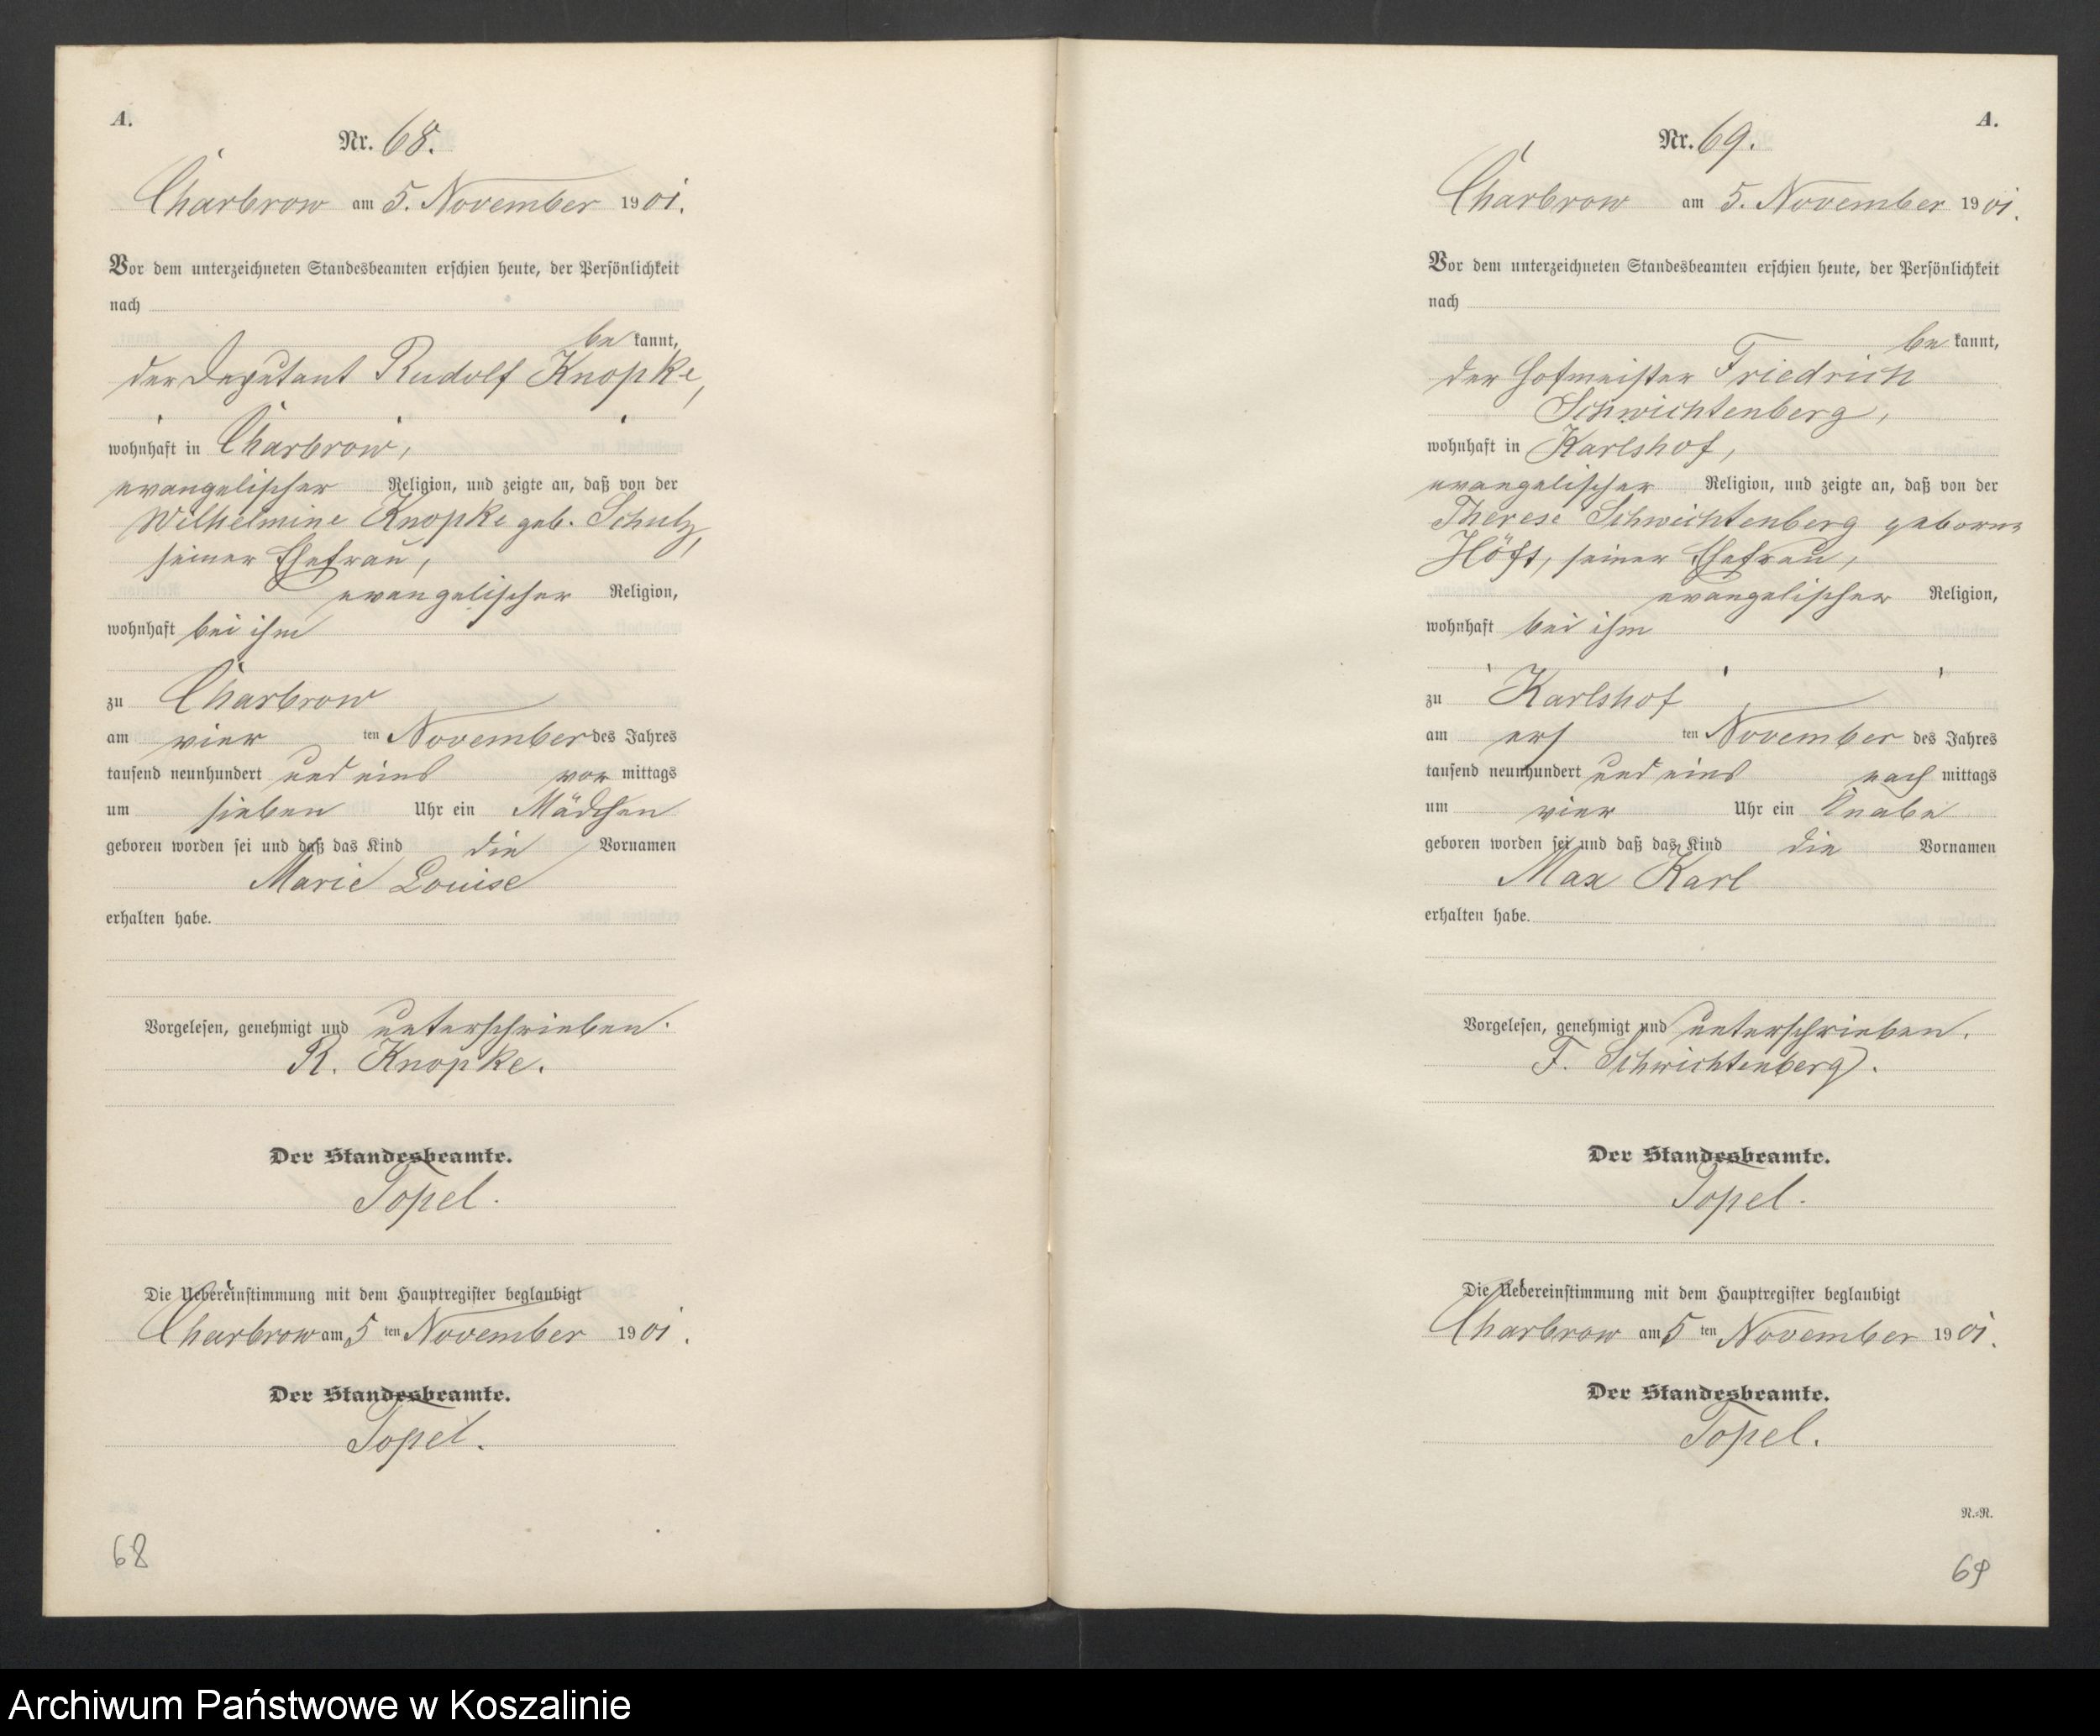 A.
Nr. 68.
Charbrow am 5. November 1901.
Vor dem unterzeichneten Standesbeamten erschien heute, der Persönlichkeit
nach
be kannt,
der Deputant Rudolf Knopke,
wohnhaft in Charbrow,
evangelischer Religion, und zeigte an, daß von der
Wilhelmine Knopke geb. Schulz,
seiner Ehefrau,
evangelischer Religion,
wohnhaft bei ihm
zu Charbrow
am vier ten November des Jahres
tausend neunhundert und eins vor mittags
um sieben Uhr ein Mädchen
geboren worden sei und daß das Kind die Vornamen
Marie Louise
erhalten habe.
Vorgelesen, genehmigt und unterschrieben.
R. Knopke.
Der Standesbeamte.
Topel.
Die Uebereinstimmung mit dem Hauptregister beglaubigt
Charbrow am 5 ten November 1901.
Der Standesbeamte.
Topel.
68
A.
Nr. 69.
Charbrow am 5. November 1901.
Vor dem unterzeichneten Standesbeamten erschien heute, der Persönlichkeit
nach
be kannt,
der Hofmeister Friedrich
Schwichtenberg,
wohnhaft in Karlshof,
evangelischer Religion, und zeigte an, daß von der
Therese Schwichtenberg geborne
Höft, seiner Ehefrau,
evangelischer Religion,
wohnhaft bei ihm
zu Karlshof
am ers ten November des Jahres
tausend neunhundert und eins nach mittags
um vier Uhr ein Knabe
geboren worden sei und daß das Kind die Vornamen
Max Karl
erhalten habe.
Vorgelesen, genehmigt und unterschrieben.
F. Schwichtenberg.
Der Standesbeamte.
Topel.
Die Uebereinstimmung mit dem Hauptregister beglaubigt
Charbrow am 5 ten November 1901.
Der Standesbeamte.
Topel.
N.=R.
69
Archiwum Państwowe w Koszalinie